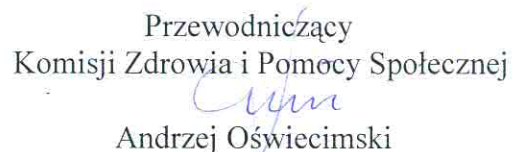 Przewodniczący
Komisji Zdrowia i Pomocy Społecznej
Andrzej Oświecimski